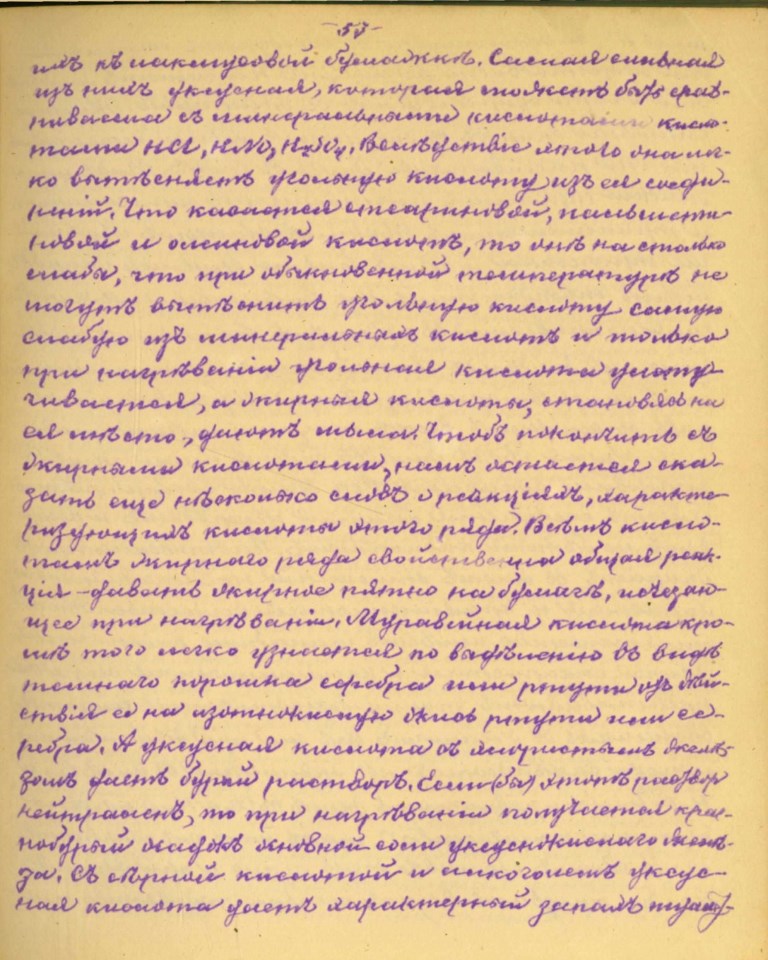 -53-
имъ къ лакмусовой бумажкѣ. Самая сильная
изъ нихъ уксусная, которая можетъ быть срав-
ниваема съ минеральными кислотами кисло-
тами HCl, HNO3 H2SO4. Вслѣдствіе этого она лег-
ко вытѣсняетъ угольную кислоту изъ ея соеди-
неній. Что касается стеариновой, пальмити-
новой и олеиновой кислотъ, то онѣ на столько
слабы, что при обыкновенной температурѣ не
могутъ вытѣснить угольную кислоту самую
слабую изъ минеральныхъ кислотъ и только
при нагрѣваніи угольная кислота улету-
чивается, а жирныя кислоты, становясь на
ея мѣсто, даютъ мыла. Чтобъ покончить съ
жирными кислотами, намъ остается ска-
зать еще нѣсколько словъ о реакціяхъ, характе-
ризующихъ кислоты этого ряда. Всѣмъ кисло-
тамъ жирнаго ряда свойственна общая реак-
ція - давать жирное пятно на бумагѣ, исчезаю-
щее при нагрѣваніи. Муравейная кислота кро-
мѣ того легко узнается по выдѣленію въ видѣ
темнаго порошка серебра или ртути отъ дѣй-
ствія ея на азотнокислую окись ртути или се-
ребра. А уксусная кислота съ хлористымъ желѣ-
зомъ даетъ бурый растворъ. Если (бы) этотъ растворъ
нейтраленъ, то при нагрѣваніи получается крас-
нобурый осадокъ основной соли уксуснокислаго желѣ-
за. Съ сѣрной кислотой и алкоголемъ уксус-
ная кислота даетъ характерный запахъ